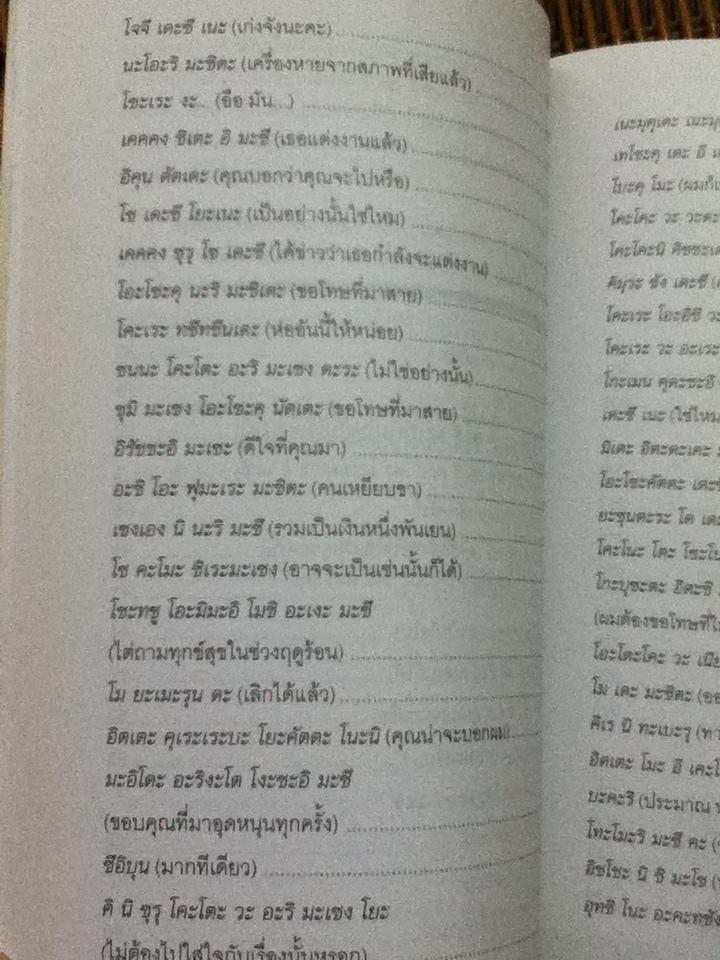 โจจี เดะซึ เนะ (เก่งจังนะคะ)
นะโอะริ มะชิตะ (เครื่องหายจากสภาพที่เสียแล้ว)
โซะเระ งะ... (อือ มัน...)
เคคคง ชิเตะ อิ มะซึ (เธอแต่งงานแล้ว)
อิคุน ดัตเตะ (คุณบอกว่าคุณจะไปหรือ)
โซ เดะซึ โยะเนะ (เป็นอย่างนั้นใช่ไหม)
เคคคง ซุรุ โซ เดะซึ (ได้ข่าวว่าเธอกำลังจะแต่งงาน)
โอะโซะคุ นะริ มะชิเตะ (ขอโทษที่มาสาย)
โคะเระ ทซึทซึนเดะ (ห่ออันนี้ให้หน่อย)
ซนนะ โคะโตะ อะริ มะเซง คะระ (ไม่ใช่อย่างนั้น)
ซุมิ มะเซง โอะโซะคุ นัตเตะ (ขอโทษที่มาสาย)
อิรัชชะอิ มะเซะ (ดีใจที่คุณมา)
อะชิ โอะ ฟุมะเระ มะชิตะ (คนเหยียบขา)
เซงเอง นิ นะริ มะซึ (รวมเป็นเงินหนึ่งพันเยน)
โซ คะโมะ ชิเระมะเซง (อาจจะเป็นเช่นนั้นก็ได้)
โชะทชู โอะมิมะอิ โมชิ อะเงะ มะซึ
(ไต่ถามทุกข์สุขในช่วงฤดูร้อน)
โม ยะเมะรุน ดะ (เลิกได้แล้ว)
อิตเตะ คุเระเระบะ โยะคัตตะ โนะนิ (คุณน่าจะบอกผม)
มะอิโดะ อะริงะโต โงะซะอิ มะซึ
(ขอบคุณที่มาอุดหนุนทุกครั้ง)
ซึอิบุน (มากทีเดียว)
คิ นิ ซุรุ โคะโตะ วะ อะริ มะเซง โยะ
(ไม่ต้องไปใส่ใจกับเรื่องนั้นหรอก)
เทโชะคุ เดะ อิ
โบะคุ โมะ (ผมก็
โคะโคะ วะ วะตะ
คิมุระ ซัง เดะซึ
โคะเระ โอะอิชิ วะ
โคะเระ วะ อะเระ
เดะซึ เนะ (ใช่ไหม
โอะโซะคัตตะ เดะ
โคะโนะ โตะ โซะโน
(ผมต้องขอโทษที่ไ
โอะโตะโคะ วะ
โม เดะ มะชิตะ (ออ
คิเร นิ ทะเบะรุ (ทา
อิตเตะ โมะ อี เคะโ
บะคะริ (ประมาณ
โทะโมะริ มะซึ คะ